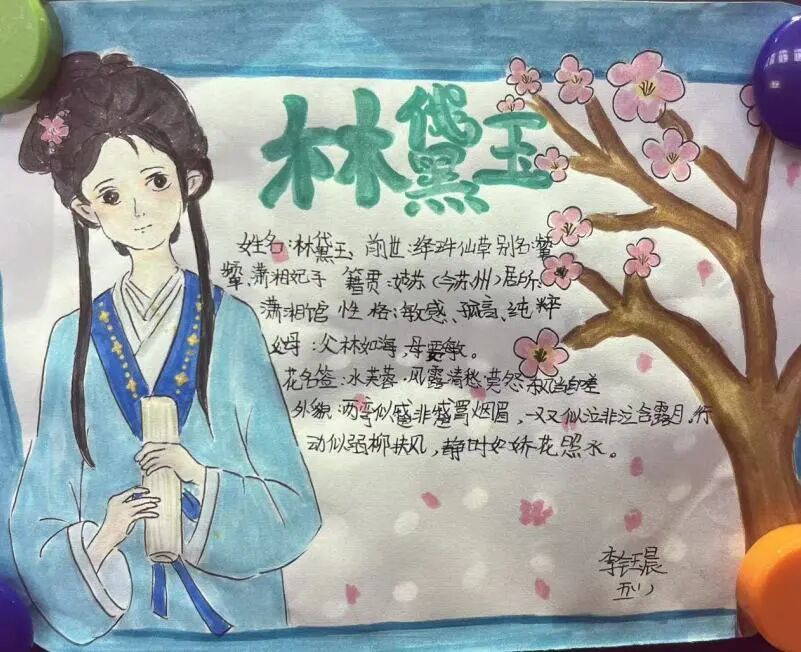 林黛玉
姓名:林黛玉 前世:绛珠仙草 别名:颦
颦、潇湘妃子 籍贯:姑苏(今苏州)居所:
潇湘馆 性格:敏感、孤高、纯粹
父母:父林如海,母贾敏。
花名签:水芙蓉·风露清愁·莫怨
外貌:两弯似蹙非蹙罥烟眉,一双似泣非泣含露目.行
动似弱柳扶风,静时如娇花照水。
李钰晨
五(1)